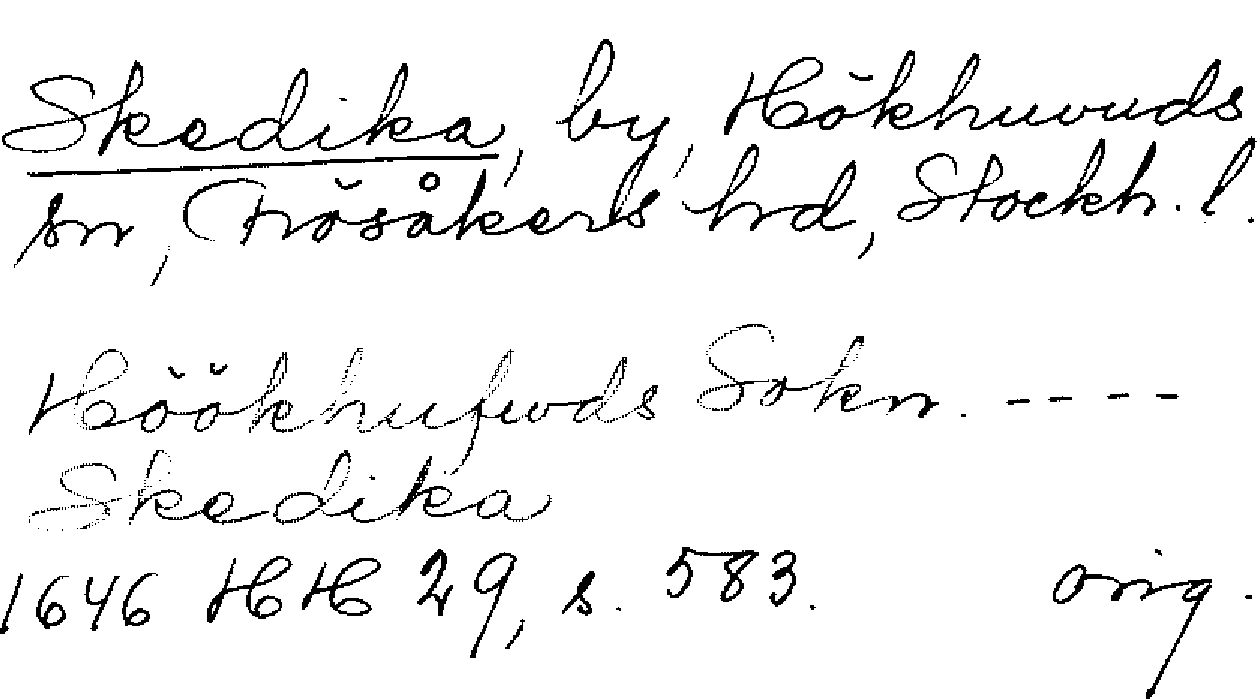 Skedika, by, Hökhuvuds
sn, Frösåkers hd, Stockh. l.
Höökhufwds Sokn. ----
Skedika
1646 HH 29, s. 583. orig.